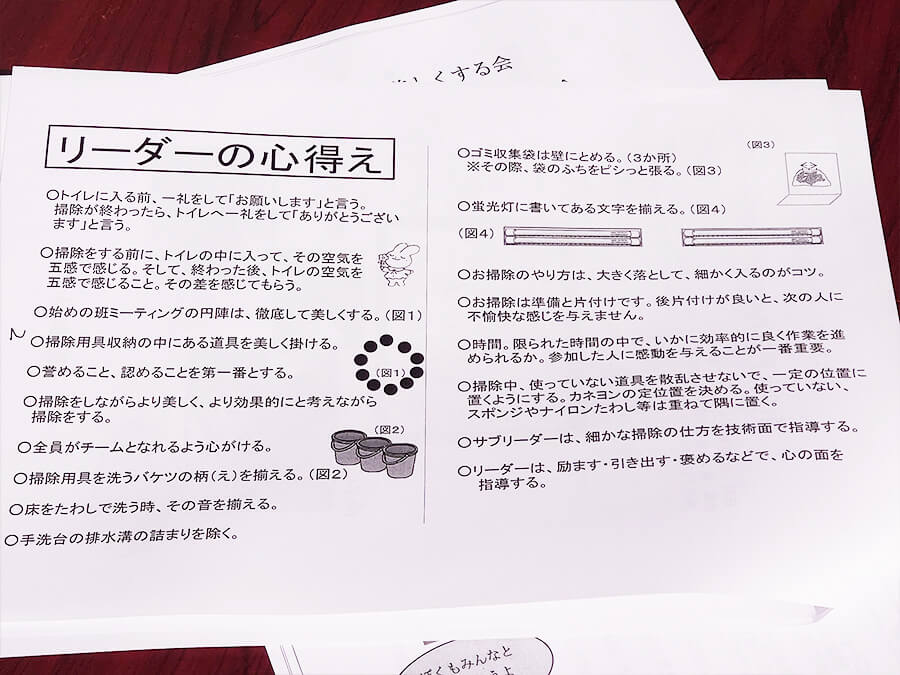 しくする会
リーダーの心得え
○トイレに入る前、一礼をして「お願いします」と言う。
掃除が終わったら、トイレへ一礼をして「ありがとうござい
ます」と言う。
○掃除をする前に、トイレの中に入って、その空気を
五感で感じる。そして、終わった後、トイレの空気を
五感で感じること。その差を感じてもらう。
○始めの班ミーティングの円陣は、徹底して美しくする。(図1)
○掃除用具収納の中にある道具を美しく掛ける。
○誉めること、認めることを第一番とする。
(図1)
○掃除をしながらより美しく、より効果的にと考えながら
掃除をする。
(図2)
○全員がチームとなれるよう心がける。
○掃除用具を洗うバケツの柄(え)を揃える。(図2)
○床をたわしで洗う時、その音を揃える。
○手洗台の排水溝の詰まりを除く。
(図3)
○ゴミ収集袋は壁にとめる。(3か所)
※その際、袋のふちをピシっと張る。(図3)
○蛍光灯に書いてある文字を揃える。(図4)
(図4)
○お掃除のやり方は、大きく落として、細かく入るのがコツ。
○お掃除は準備と片付けです。後片付けが良いと、次の人に
不愉快な感じを与えません。
○時間。限られた時間の中で、いかに効率的に良く作業を進
められるか。参加した人に感動を与えることが一番重要。
○掃除中、使っていない道具を散乱させないで、一定の位置に
置くようにする。カネヨンの定位置を決める。使っていない、
スポンジやナイロンたわし等は重ねて隅に置く。
○サブリーダーは、細かな掃除の仕方を技術面で指導する。
○リーダーは、励ます・引き出す・褒めるなどで、心の面を
指導する。
ぼくもみんなと